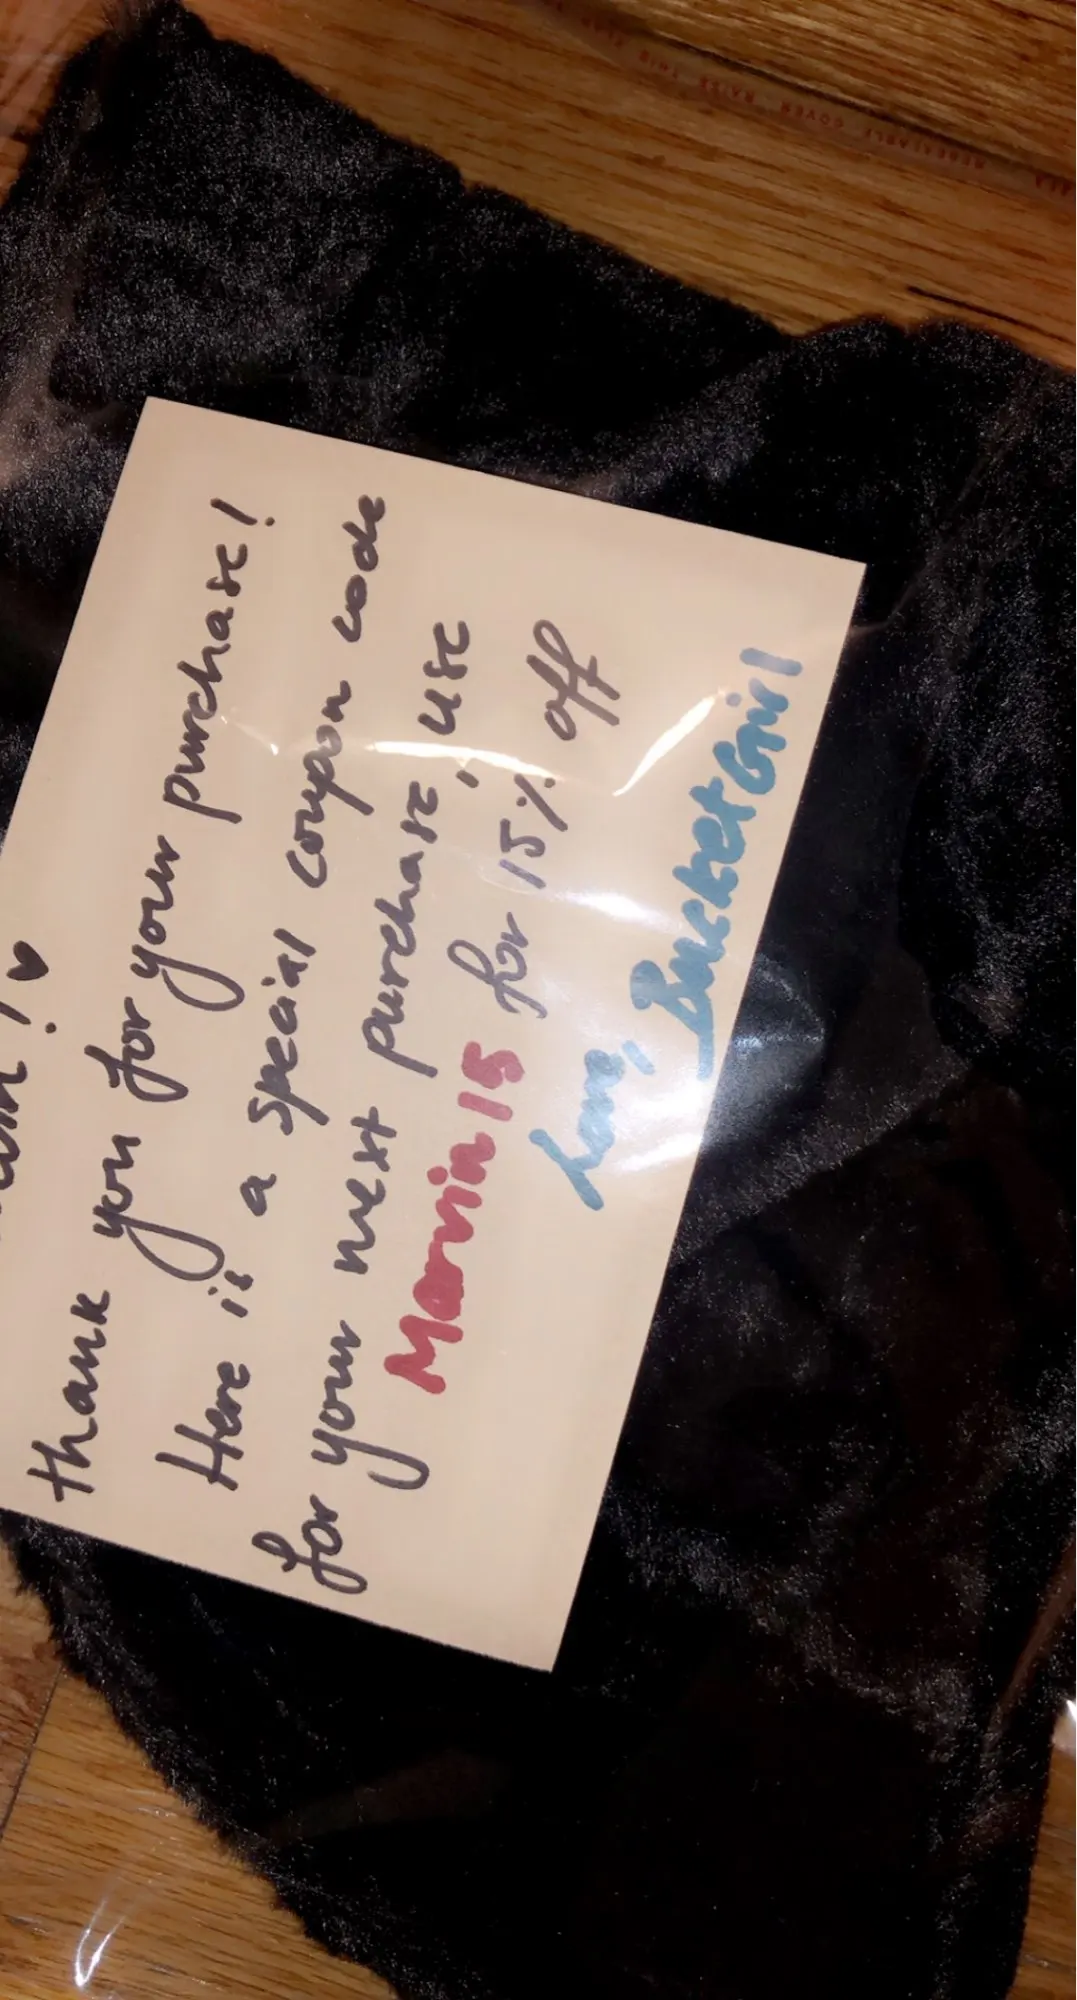 ! ♥
thank you for your purchase!
Here is a special coupon code
for your next purchase, use
Marvin15 for 15% off
Love, BucketGirl
RESEALABLE COVER RAISE THIS